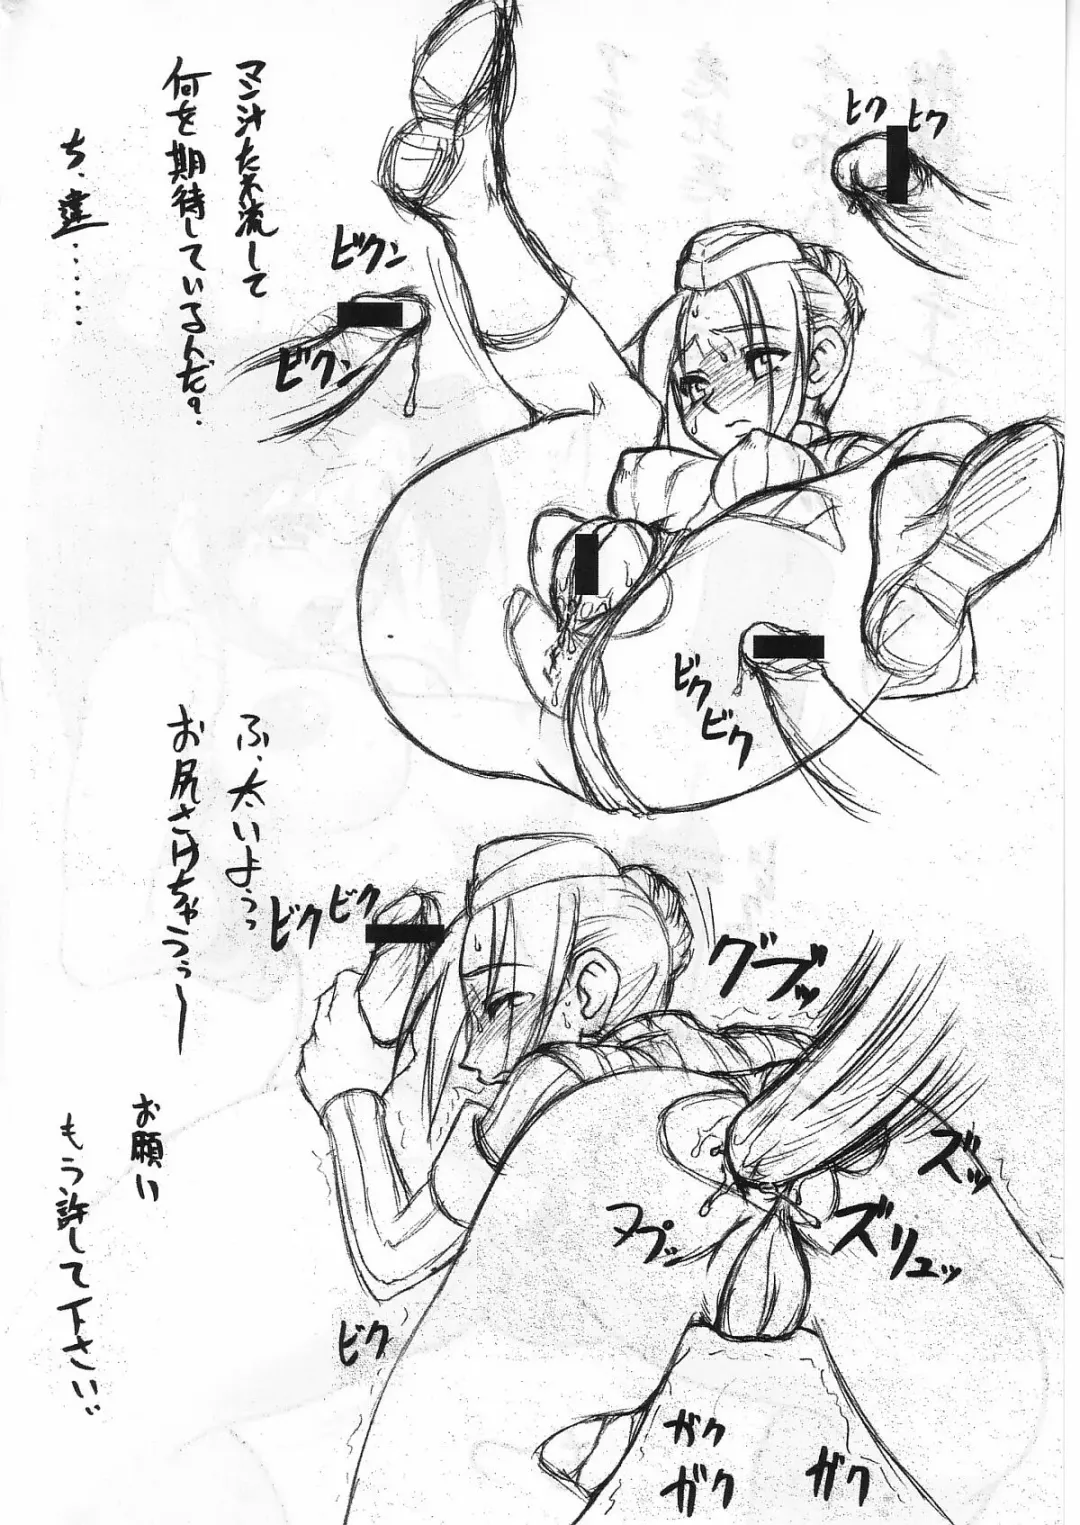 マン汁たれ流して
何を期待しているんだ？
ち、違……
ビクン
ビクン
ビク
ビク
ビク
ビク
ふ、太いよぅっ
お尻さけちゃうぅー
お願い
もう許して下さい
ビク
ビク
グブッ
ズッ
ズリュッ
ヌプッ
ビク
ガク
ガク
ガク